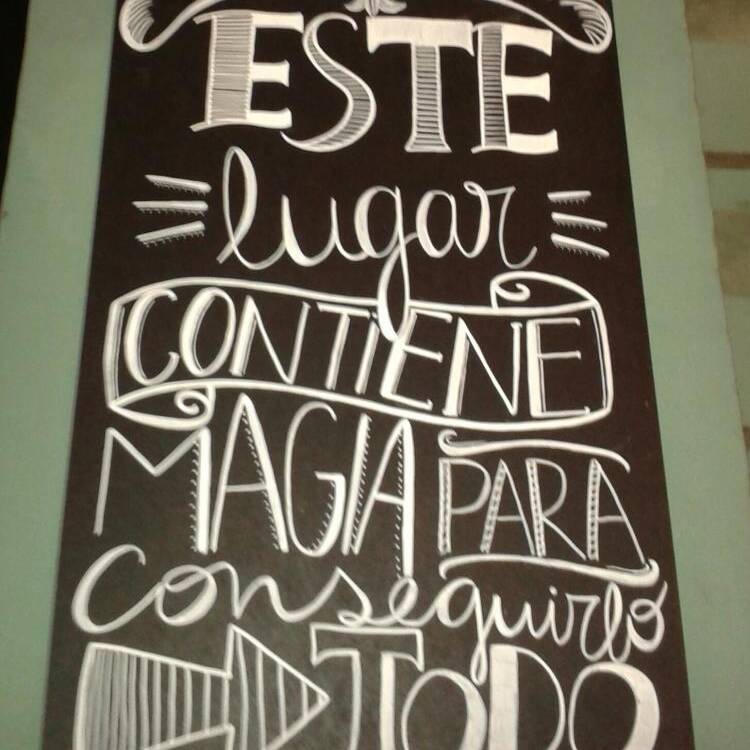 ESTE
lugar
CONTIENE
MAGIA PARA
conseguirlo
TODO